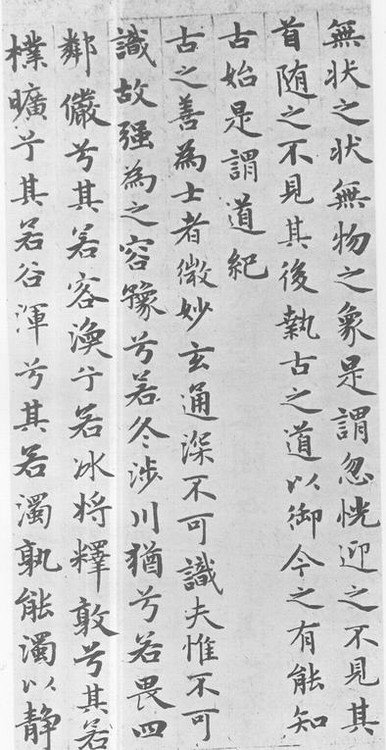 無状之状無物之象是謂忽恍迎之不見其
首随之不見其後執古之道以御今之有能知
古始是謂道紀
古之善為士者微妙玄通深不可識夫惟不可
識故强為之容豫兮若冬涉川猶兮若畏四
鄰儼兮其若容渙兮若冰将釋敦兮其若
樸曠兮其若谷渾兮其若濁孰能濁以静